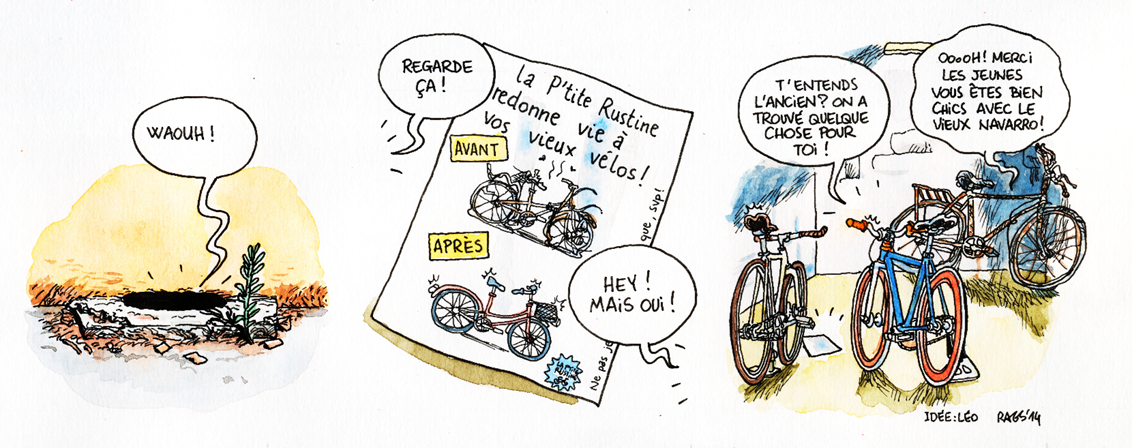 WAOUH !
REGARDE
ÇA !
la P'tite Rustine
redonne vie à
vos vieux vélos !
AVANT
APRÈS
HEY !
MAIS OUI !
Ne pas je
que, svp!
T'ENTENDS
L'ANCIEN? ON A
TROUVÉ QUELQUE
CHOSE POUR
TOI !
OOOOH! MERCI
LES JEUNES
VOUS ÊTES BIEN
CHICS AVEC LE
VIEUX NAVARRO!
IDÉE: LÉO RAGS'14